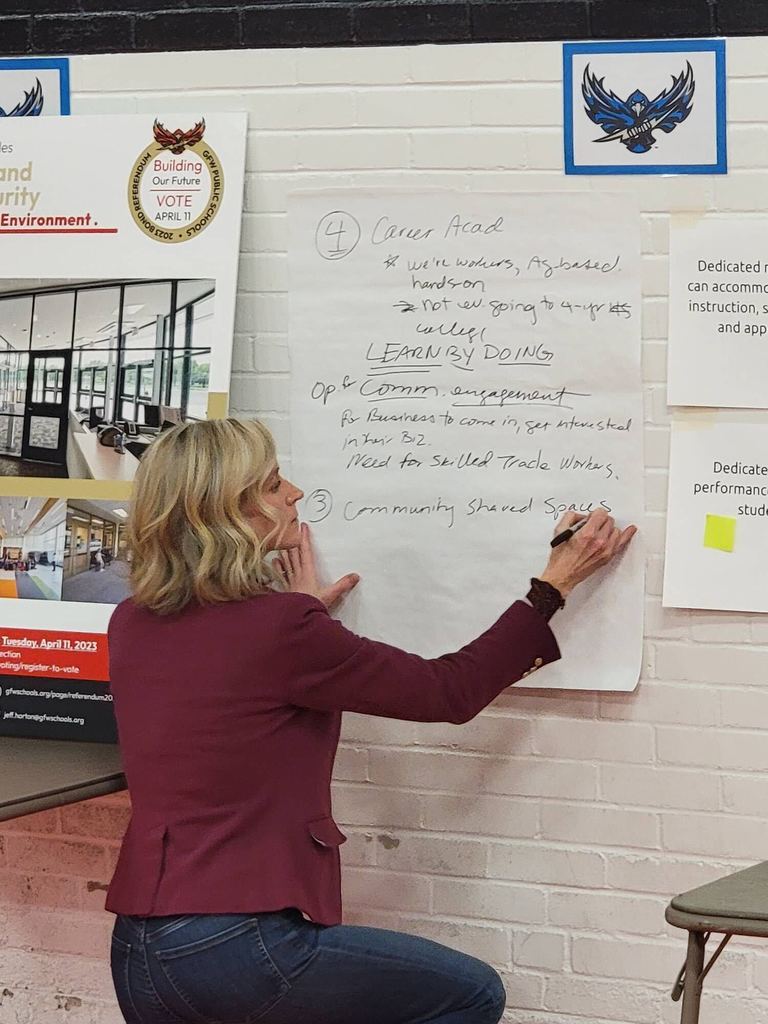 les
and
urity
Environment.
Building
Our Future
VOTE
APRIL 11
2023 BOND REFERENDUM
GFW PUBLIC SCHOOLS
4 Career Acad
* we're workers, Ag-based.
hands on
not ev. going to 4-yr
college
LEARN BY DOING
Op. for Comm. engagement
for Business to come in, get interested
in their Biz.
Need for Skilled Trade Workers.
3 Community Shared Spaces
Dedicated
can accommo
instruction, s
and app
Dedicate
performanc
stude
Tuesday, April 11, 2023
ection
voting/register-to-vote
gfwschools.org/page/referendum20
jeff.horton@gfwschools.org